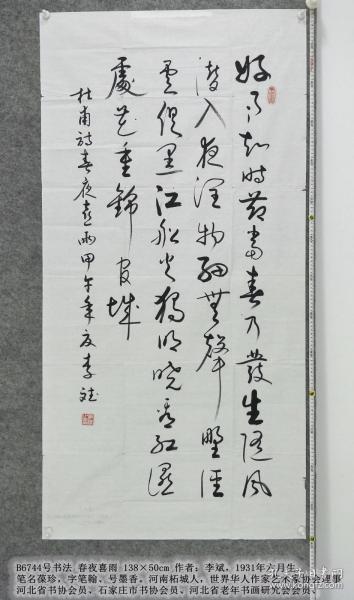 好雨知时节當春乃發生随风
潜入夜润物细無聲野徑
雲俱黑江船火獨明晓看红濕
處花重錦官城
杜甫詩春夜喜雨甲午年夏李斌
B6744号书法 春夜喜雨 138×50cm 作者：李斌，1931年六月生，
笔名葆珍，字笔翰、号墨香。河南柘城人，世界华人作家艺术家协会理事
河北省书协会员、石家庄市书协会员、河北省老年书画研究会会员、